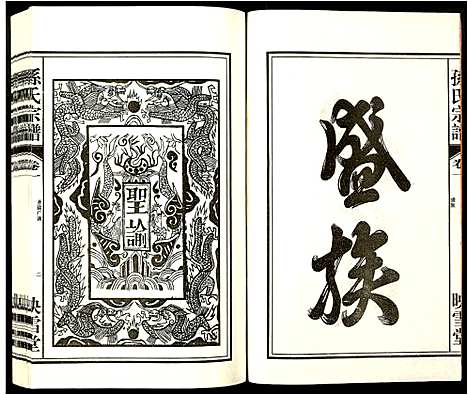 孫氏宗譜
卷一
映雪堂
盛族
聖諭
孫氏宗譜
卷一
映雪堂